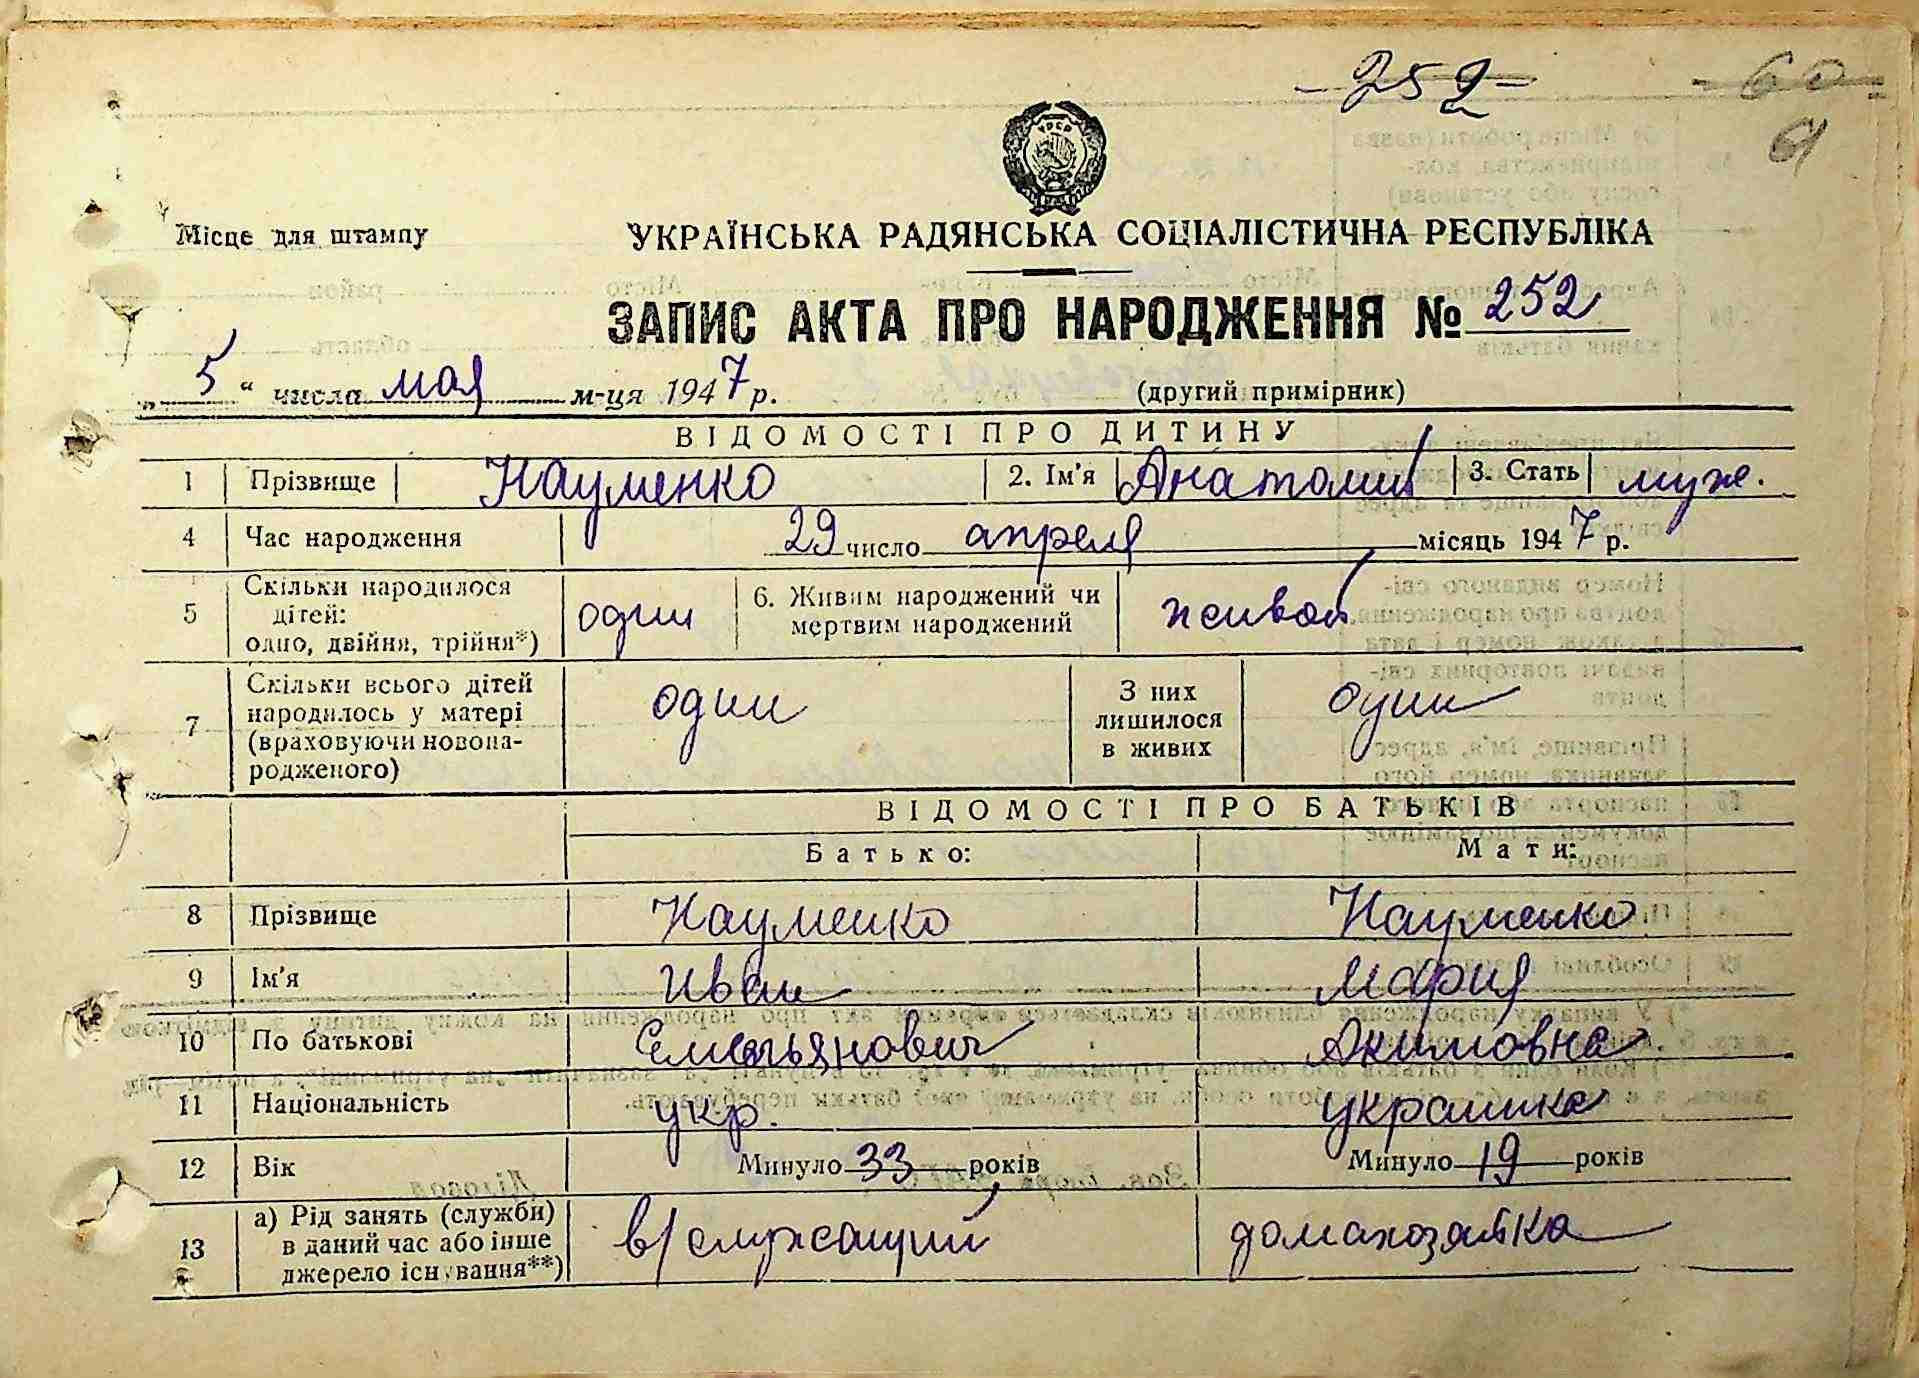 252 60
61
Місце для штампу
УКРАЇНСЬКА РАДЯНСЬКА СОЦІАЛІСТИЧНА РЕСПУБЛІКА
ЗАПИС АКТА ПРО НАРОДЖЕННЯ № 252
„ 5 “ числа мая м-ця 1947 р. (другий примірник)
ВІДОМОСТІ ПРО ДИТИНУ
1 Прізвище Науменко 2. Ім'я Анатолий 3. Стать муж.
4 Час народження 29 число апреля місяць 1947 р.
5 Скільки народилося
дітей:
одно, двійня, трійня*) один 6. Живим народжений чи
мертвим народжений живой
7 Скільки всього дітей
народилось у матері
(враховуючи новона-
родженого) один З них
лишилося
в живих один
ВІДОМОСТІ ПРО БАТЬКІВ
Батько: Мати:
8 Прізвище Науменко Науменко
9 Ім'я Иван Мария
10 По батькові Емельянович Акимовна
11 Національність укр. украинка
12 Вік Минуло 33 років Минуло 19 років
13 а) Рід занять (служби)
в даний час або інше
джерело існування**) в/служащий домахозяйка